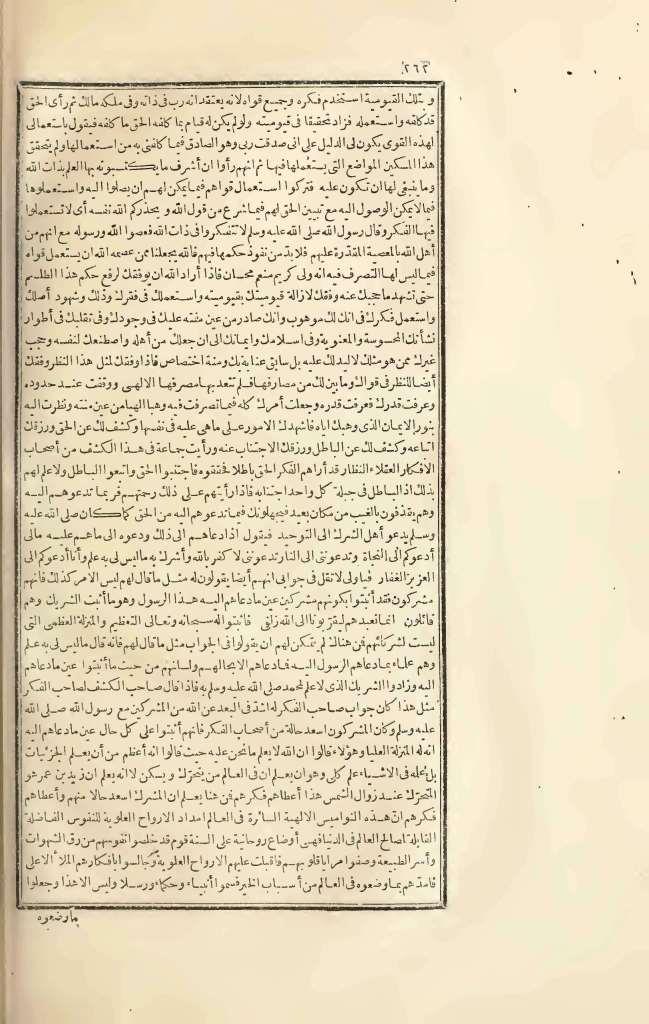 ٢٦٣
وبتلك القيومية استخدم فكره وجميع قواه لانه يعتقد انه رب فى ذاته وفى ملكه مالك ثم رأى الحق
قد كلفه واستعمله فزاد تحقيقا فى قيوميته ولولم يكن له قيام بما كلفه الحق ما كلفه فيقول باستعمالى
لهذه القوى يكون لى الدليل على انى صدقت ربى وهو الصادق فيما كلفنى به من استعمالها ولم يتحقق
هذا المسكين المواضع التى يستعملها فيها ثم انهم رأوا ان أشرف ما يكتسبونه بها العلم بذات الله
وما ينبغى لها ان تكون عليه فتركوا استعمال قواهم فيما يمكن لهم ان يصلوا اليه واستعملوها
فيما لا يمكن الوصول اليه مع تبيين الحق لهم فيما شرع من قول الله ويحذركم الله نفسه أى لا تستعملوا
فيها الفكر وقال رسول الله صلى الله عليه وسلم لا تتفكروا فى ذات الله فعصوا الله ورسوله مع انهم من
أهل الله بالمعصية المقدرة عليهم فلا بد من نفوذ حكمها فيهم فالله يجعلنا ممن عصمه الله ان يستعمل قواه
فيما ليس لها التصرف فيه انه ولى كريم منعم محسان فاذا أراد الله ان يوفقك لرفع حكم هذا الطلسم
حتى تشهد ما حجبك عنه وفقك لازالة قيوميتك بقيوميته واستعملك فى فقرك وذلك وشهود أصلك
واستعمل فكرك فى انك لك موهوب وانك صادر من عين منته عليك فى وجودك وفى تقلبك فى أطوار
نشأتك المحسوسة والمعنوية وفى اسلامك وايمانك الى ان جعلك من أهله واصطنعك لنفسه وحجب
غيرك ممن هو مثلك لا ليد لك عليه بل سابق عناية بك ومنة اختصاص فاذا وفقك لمثل هذا النظر وفقك
أيضا للنظر فى قواك وما بين لك من مصارفها فلم تتعد بها مصرفها الالهى ووقفت عند حدوده
وعرفت قدرك فعرفت قدره وجعلت أمرك كله فيما تصرفت فيه وهبا الهيا من عين منته ونظرت اليه
بنور الايمان الذى وهبك اياه فاشهدك الامور على ما هى عليه فى نفسها وكشف لك عن الحق ورزقك
اتباعه وكشف لك عن الباطل ورزقك الاجتناب عنه ورأيت جماعة فى هذا الكشف من أصحاب
الافكار العقلاء النظار قد أراهم الفكر الحق باطلا فحققوه فاجتنبوا الحق واتبعوا الباطل ولا علم لهم
بذلك اذ الباطل فى جبلة كل واحد اجتنابه فاذا رأيتهم على ذلك رحمتهم فربما تدعوهم اليه
وهم يقذفون بالغيب من مكان بعيد فيجهلونك فيما تدعوهم اليه من الحق كما كان صلى الله عليه
وسلم يدعو أهل الشرك الى التوحيد فيقول اذا دعاهم الى ذلك ودعوه الى ماهم عليه مالى
أدعوكم الى النجاة وتدعوننى الى النار تدعوننى لا كفر بالله وأشرك به ما ليس لى به علم وأنا أدعوكم الى
العزيز الغفار فياولى لا تقل فى جوابى انهم أيضا يقولون له مثل ما قال لهم ليس الامر كذلك فانهم
مشركون فقد أثبتوا بكونهم مشركين عين ما دعاهم اليه هذا الرسول وهو ما أثبت الشريك وهم
قائلون انما نعبدهم ليقربونا الى الله زلفى فاثبتوا له سبحانه وتعالى التعظيم والمنزلة العظمى التى
ليست لشركائهم فمن هنالك لم يتمكن لهم ان يقولوا فى الجواب مثل ما قال لهم فانه قال ما ليس لى به علم
وهم علماء بما دعاهم الرسول اليه فما دعاهم الا بحالهم ولسانهم من حيث ما أثبتوا عين ما دعاهم
اليه وزادوا الشريك الذى لا علم لمحمد صلى الله عليه وسلم به فاذا قال صاحب الكشف لصاحب الفكر
مثل هذا كان جواب صاحب الفكر له أشد فى البعد عن الله من المشركين مع رسول الله صلى الله
عليه وسلم وكان المشركون أسعد حالة من أصحاب الفكر فانهم أثبتوا على كل حال عين ما دعاهم اليه
انه له المنزلة العليا وهؤلاء قالوا ان الله لا يعلم ما نحن عليه حيث قالوا انه أعظم من أن يعلم الجزئيات
بل علمه فى الاشياء علم كلى وهو ان يعلم ان فى العالم من يتحرك ويسكن لا انه يعلم ان زيد بن عمر هو
المتحرك عند زوال الشمس هذا أعطاهم فكرهم فمن هنا يعلم ان المشرك اسعد حالا منهم وأعطاهم
فكرهم ان هذه النواميس الالهية السائرة فى العالم امداد الارواح العلوية للنفوس الفاضلة
القابلة لمصالح العالم فى الدنيا فهى أوضاع روحانية على السنة قوم قد خلصوا نفوسهم من رق الشهوات
وأسر الطبيعة وصفوا مرايا قلوبهم فاقبلت عليهم الارواح العلوية وجالسوا بافكارهم الملأ الاعلى
فامدهم بما وضعوه فى العالم من أسباب الخير فسموا أنبياء وحكماء ورسلا وليس الا هذا وجعلوا
ما وضعوه